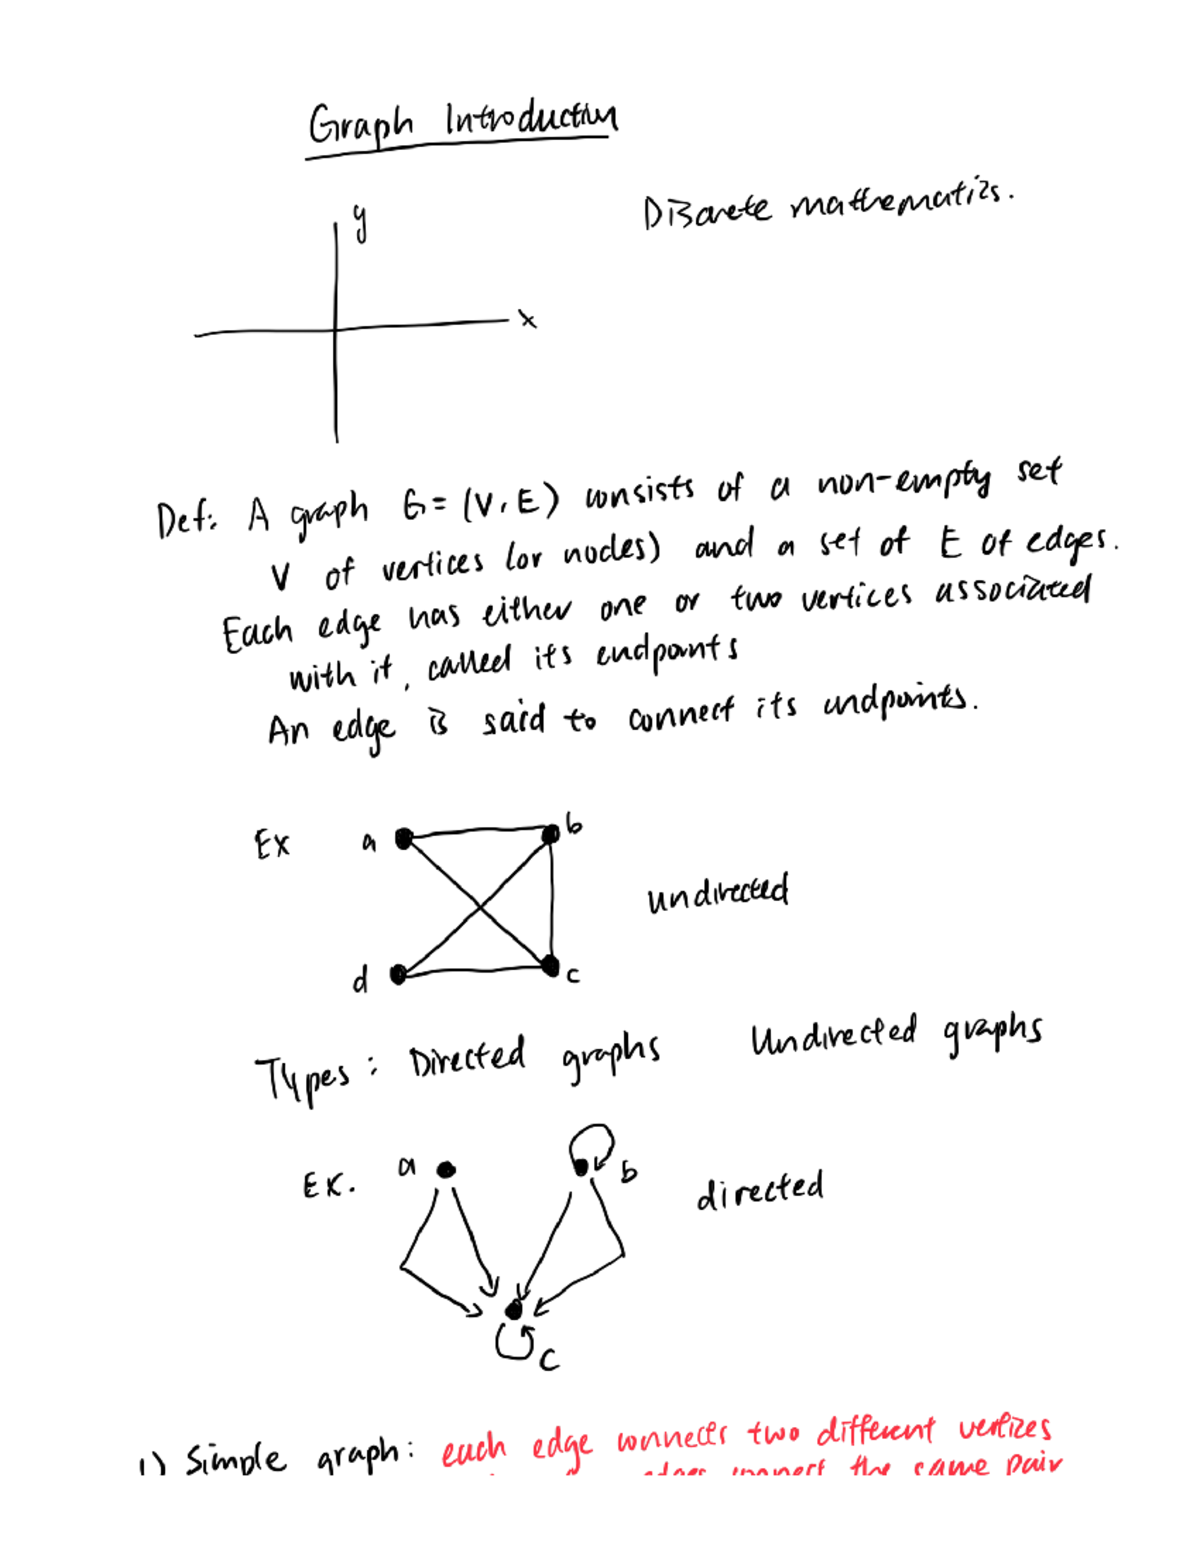 Graph Introduction
y
Discrete mathematics.
x
Def: A graph G = (V, E) consists of a non-empty set
V of vertices (or nodes) and a set of E of edges.
Each edge has either one or two vertices associated
with it, called its endpoints
An edge is said to connect its endpoints.
Ex a b
undirected
d c
Types: Directed graphs Undirected graphs
Ex. a b directed
c
1) Simple graph: each edge connects two different vertices
edges connect the same pair